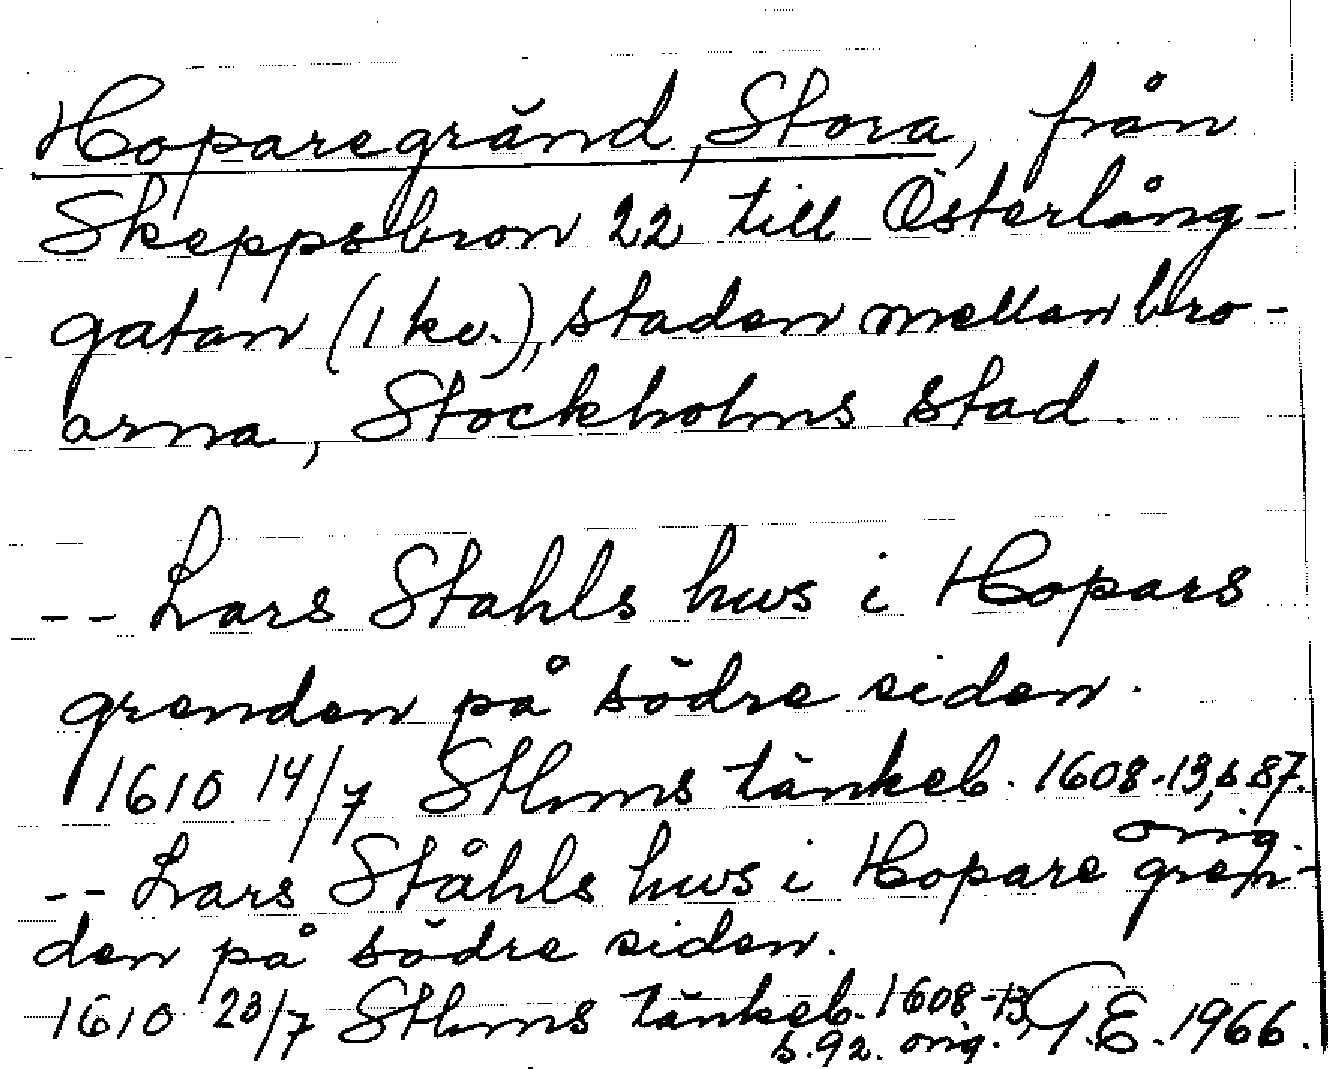 Hoparegränd, Stora, från
Skeppsbron 22 till Österlång-
gatan (1 kv.), staden mellan bro-
arna, Stockholms stad.
-- Lars Stahls hws i Hopars
grenden på södre siden.
1610 14/7 Sthms tänkeb. 1608-13, s 87.
orig.
-- Lars Ståhls hws i Hopare gren-
den på södre siden.
1610 23/7 Sthms tänkeb. 1608-13,
s. 92. orig. G.E. 1966.